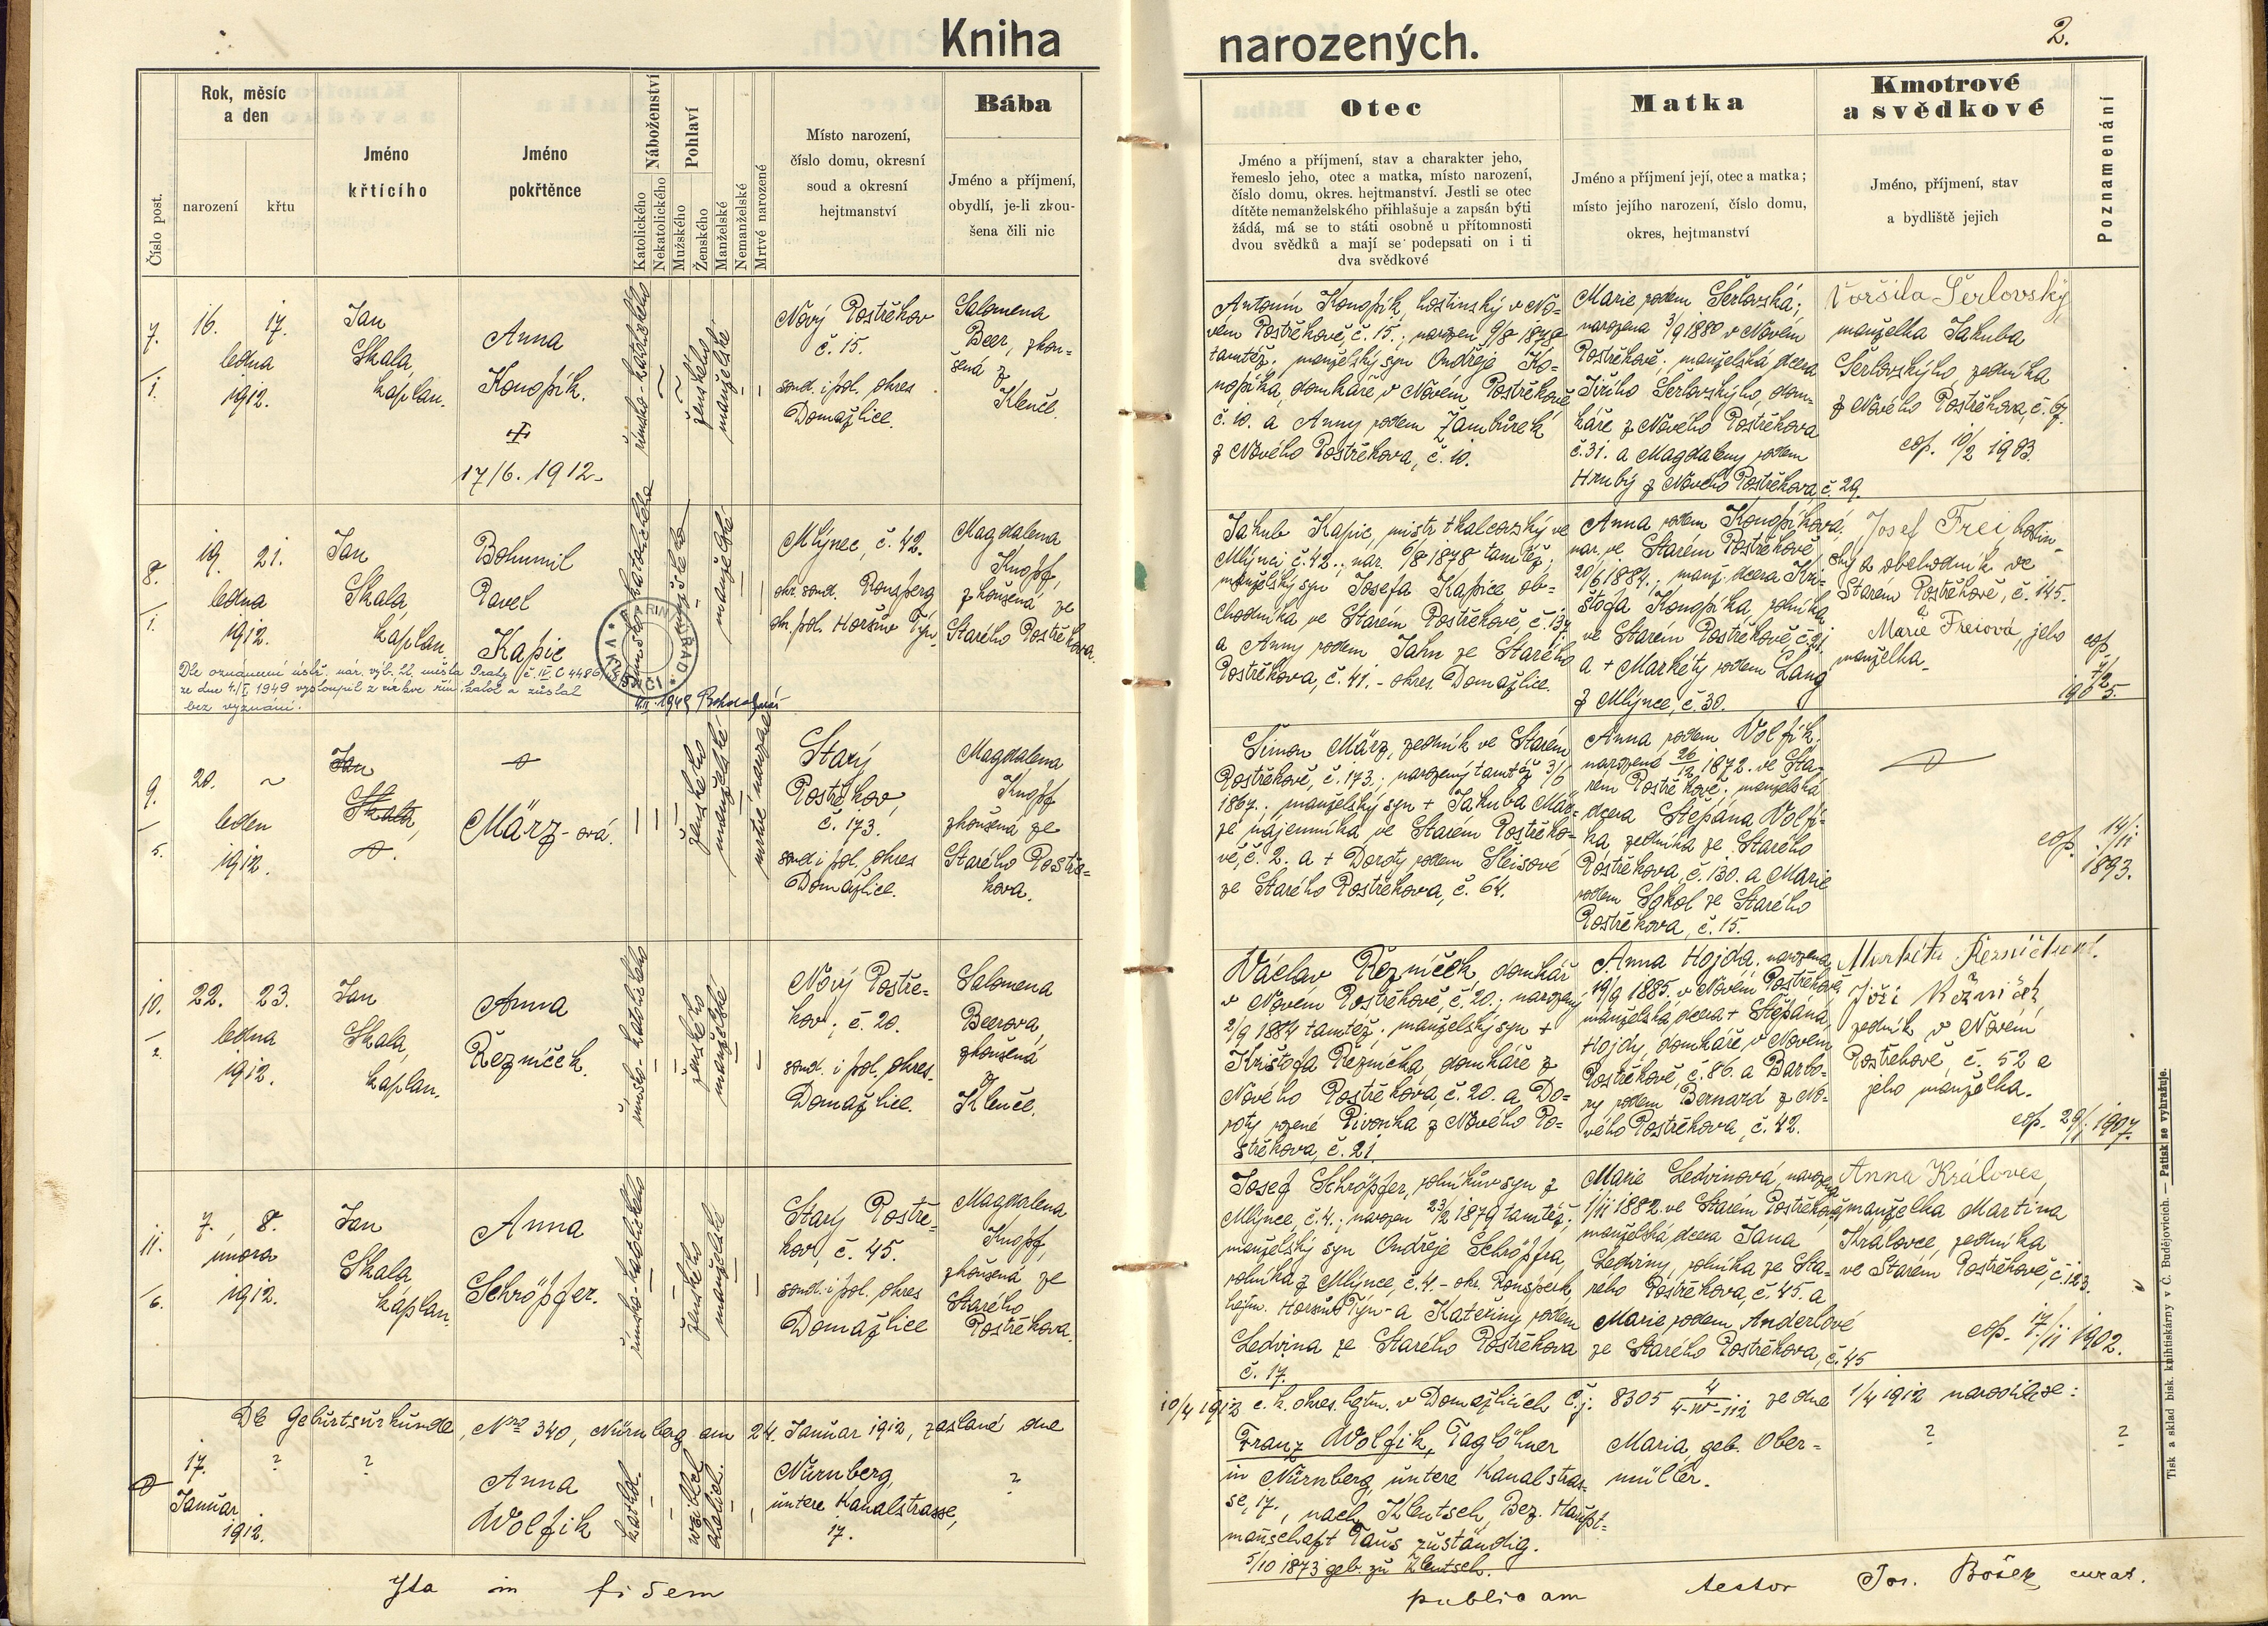 Kniha narozených.
2.
Rok, měsíc
a den
narození
křtu
Číslo post.
Jméno
křtícího
Jméno
pokřtěnce
Náboženství
Katolického
Nekatolického
Pohlaví
Mužského
Ženského
Manželské
Nemanželské
Mrtvé narozené
Místo narození,
číslo domu, okresní
soud a okresní
hejtmanství
Bába
Jméno a příjmení,
obydlí, je-li zkou-
šena čili nic
Otec
Jméno a příjmení, stav a charakter jeho,
řemeslo jeho, otec a matka, místo narození,
číslo domu, okres. hejtmanství. Jestli se otec
dítěte nemanželského přihlašuje a zapsán býti
žádá, má se to státi osobně u přítomnosti
dvou svědků a mají se podepsati on i ti
dva svědkové
Matka
Jméno a příjmení její, otec a matka;
místo jejího narození, číslo domu,
okres, hejtmanství
Kmotrové
a svědkové
Jméno, příjmení, stav
a bydliště jejich
Poznamenání
7.
1.
16. 17.
ledna
1912.
Jan
Skala,
kaplan.
Anna
Konopík.
17/6. 1912.
římsko-katolického
ženského
manželské
Nový Postřekov
č. 15.
soud i pol. okres
Domažlice.
Salomena
Beer, zkou=
šená z
Klenče.
Antonín Konopík, hostinský v No-
vém Postřekově, č. 15.; narozen 9/8 1878
tamtéž; manželský syn Ondřeje Ko-
nopíka, domkáře v Novém Postřekově
č. 10. a Anny rodem Žambůrek
z Nového Postřekova, č. 10.
Marie rodem Šerlovská;
narozena 3/9 1880 v Novém
Postřekově; manželská dcera
Jiřího Šerlovského, dom-
káře z Nového Postřekova
č. 31. a Magdaleny rodem
Hrubý z Nového Postřekova, č. 29.
Voršila Šerlovský,
manželka Jakuba
Šerlovského zedníka
z Nového Postřekova, č. 67.
cop. 10/2 1903.
8.
1.
19. 21.
ledna
1912.
Jan
Skala,
kaplan.
Bohumil
Pavel
Kapic
Dle oznámení ústř. nár. výb. hl. města Prahy č. IV. C 4486/
ze dne 4.II. 1949 vystoupil z církve řím. katol. a zůstal
bez vyznání.
římsko-katolického
mužského
manželské
Mlýnec, č. 42.
okr. soud. Ronsperg
okr. pol. Horšův Týn.
Magdalena
Knopf,
zkoušená ze
Starého Postřekova.
Jakub Kapic, mistr tkalcovský ve
Mlýnci č. 42.; nar. 6/8 1878 tamtéž;
manželský syn Josefa Kapice ob-
chodníka ve Starém Postřekově, č. 134
a Anny rodem Jahn ze Starého
Postřekova, č. 41. - okres. Domažlice.
Anna rodem Konopíková.
nar. ve Starém Postřekově
20/6 1884.; manž. dcera Kri-
štofa Konopíka, rolníka
ve Starém Postřekově č. 21.
a + Markéty rodem Lang
z Mlýnce, č. 30.
Josef Frei hostin-
ský a obchodník ve
Starém Postřekově, č. 145.
a
Marie Freiová, jeho
manželka.
cop.
7/2
1905.
9.
5.
20. ~
leden
1912.
Jan
Skala,
März-ová.
ženského
manželské
mrtvě narozené
Starý
Postřekov,
č. 173.
soud i pol. okres
Domažlice.
Magdalena
Knopf
zkoušená ze
Starého Postře-
kova.
Šimon März, zedník ve Starém
Postřekově, č. 173.; narozený tamtéž 3/6
1867.; manželský syn + Jakuba Mär-
ze nájemníka, ve Starém Postřeko-
vě, č. 2. a + Doroty rodem Sleisové
ze Starého Postřekova, č. 64.
Anna rodem Volfík.
narozená 26/12 1872. ve Sta-
rém Postřekově; manželská
dcera Štěpána Volfí-
ka zedníka ze Starého
Postřekova, č. 130. a Marie
rodem Sokol ze Starého
Postřekova, č. 15.
cop. 14/11
1893.
10.
2.
22. 23.
ledna
1912.
Jan
Skala,
kaplan.
Anna
Řezníček.
římsko-katolického
ženského
manželské
Nový Postře-
kov; č. 20.
soud. i pol. okres.
Domažlice.
Salomena
Beerová,
zkoušená
z
Klenče.
Václav Řezníček, domkář
v Novém Postřekově, č. 20.; narozený
2/9 1884 tamtéž; manželský syn +
Krištofa Řezníčka, domkáře z
Nového Postřekova, č. 20. a Do-
roty rozené Pivonka z Nového Po-
střekova, č. 21.
Anna Hojda. narozena
19/9 1885. v Novém Postřekově,
manželská dcera + Štěpána
Hojdy, domkáře v Novém
Postřekově, č. 86. a Barbo-
ry rodem Bernard z No-
vého Postřekova, č. 42.
Jiří Řezníček
zedník v Novém
Postřekově, č. 52 a
jeho manželka.
cop. 29/1 1907.
11.
6.
7. 8.
února
1912.
Jan
Skala,
kaplan.
Anna
Schröpfer.
římsko-katolického
ženského
manželské
Starý Postře-
kov, č. 45.
soud. i pol. okres
Domažlice
Magdalena
Knopf,
zkoušená ze
Starého
Postřekova.
Josef Schröpfer, rolníkův syn z
Mlýnce, č. 4.; narozen 23/2 1879 tamtéž;
manželský syn Ondřeje Schröpfra,
rolníka z Mlýnce, č. 4 - okr. Ronsperk,
hejtm. Horšův Týn - a Kateřiny rodem
Ledvina ze Starého Postřekova
č. 17.
Marie Ledvinová, narozena
1/11 1882. ve Starém Postřekově;
manželská, dcera Jana
Ledviny, rolníka ze Sta-
rého Postřekova, č. 45. a
Marie rodem Anderlové
ze Starého Postřekova, č. 45
Anna Královec,
manželka Martina
Královce, zedníka
ve Starém Postřekově, č. 123.
cop. 17/11 1902.
Dle Geburtsurkunde, Nro 340, Nürnberg am 24. Januar 1912, zaslané dne
10/4 1912 c. k. okres. hejtm. v Domažlicích č. j. 8305 ze dne 1/4 1912 narodila se:
17.
Januar
1912.
? ?
Anna
Wolfik
kathol.
weiblich
ehelich.
Nürnberg,
untere Kanalstrasse,
17.
?
Franz Wolfik, Taglöhner
in Nürnberg, untere Kanalstras-
se, 17., nach Klentsch, Bez. Haupt-
mannschaft Taus zuständig.
5/10 1873 geb. zu Klentsch.
Maria, geb. Ober-
müller.
? ?
Ita in fidem publicam testor Jos. Bošek, curat.
Tisk a sklad bisk. knihtiskárny v Č. Budějovicích. — Patisk se vyhražuje.